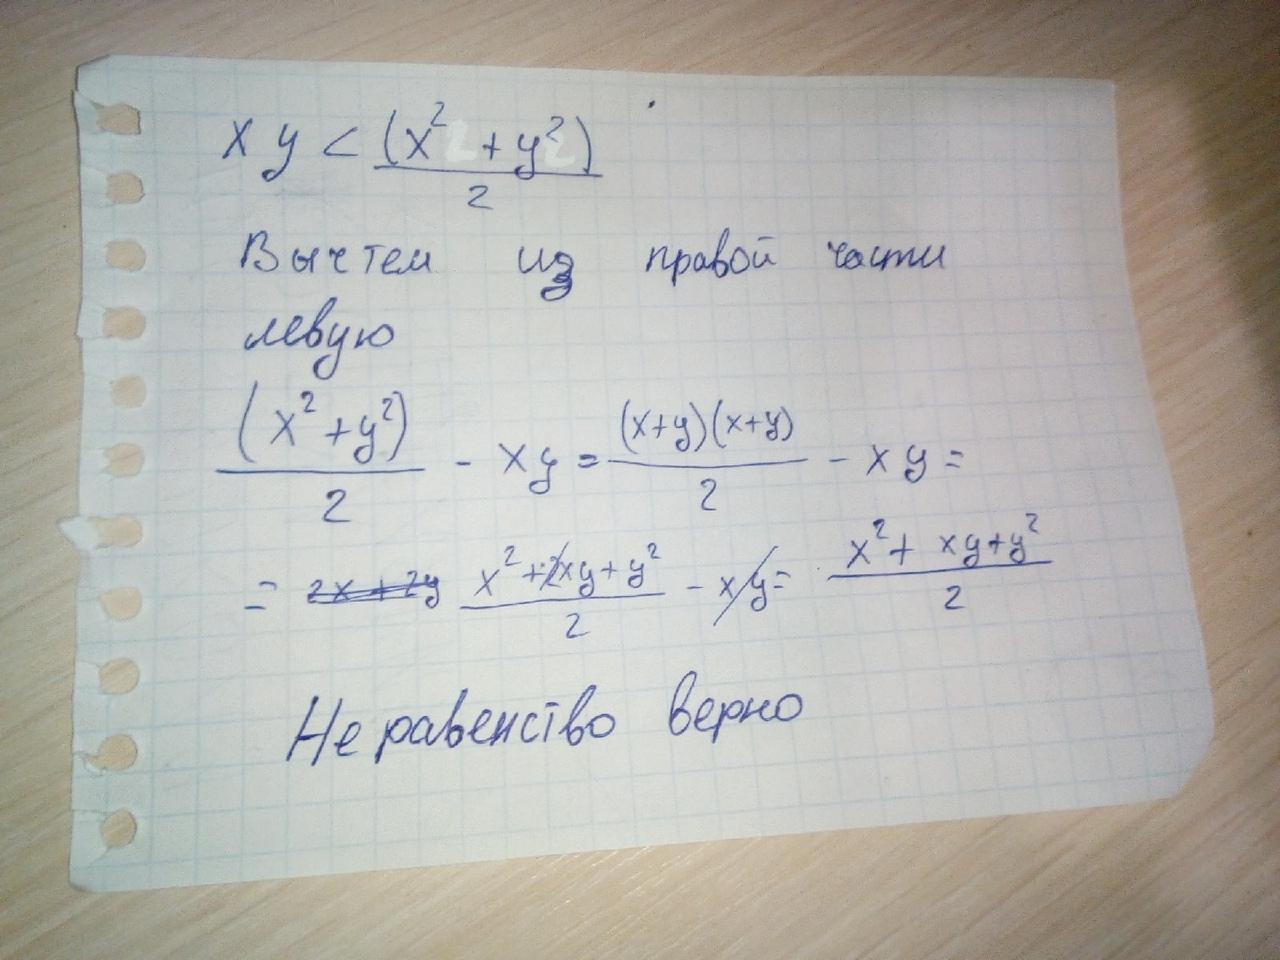 xy < (x² + y²)/2
Вычтем из правой части
левую
(x² + y²)/2 - xy = (x+y)(x+y)/2 - xy =
= 2x + 2y (x² + 2xy + y²)/2 - xy = (x² + xy + y²)/2
Неравенство верно